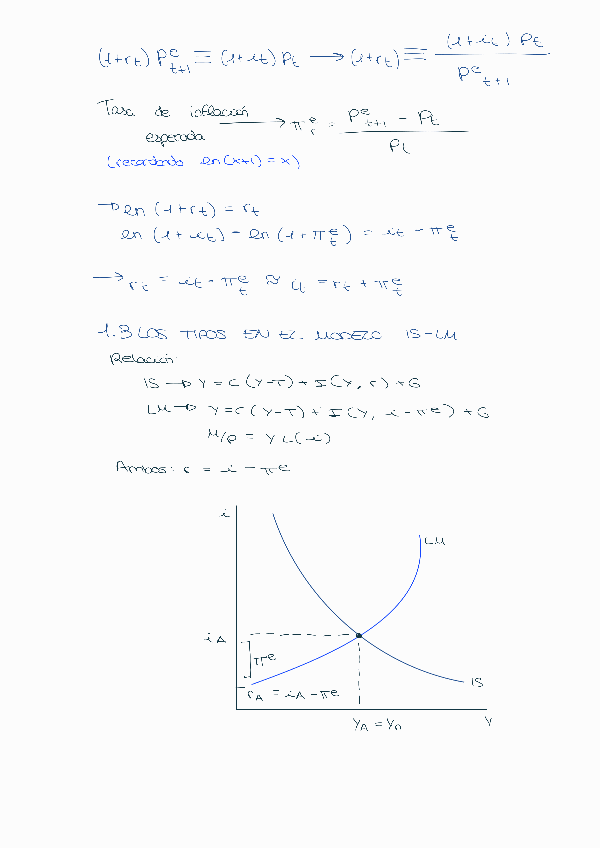 (1+rt) P^e t+1 ≡ (1+it) Pt → (1+rt) ≡ (1+it) Pt / P^e t+1
Tasa de inflación
esperada → π^e t = P^e t+1 - Pt / Pt
(recordando ln(x+1) = x)
→ ln (1+rt) = rt
ln (1+it) - ln (1+π^e t) = it - π^e t
→ rt = it - π^e t ≈ it = rt + π^e t
1.3 LOS TIPOS EN EL MODELO IS-LM
Relación:
IS → Y = C(Y-T) + I(Y, r) + G
LM → Y = C(Y-T) + I(Y, i-π^e) + G
M/P = Y L(i)
Ambos: r = i - π^e
i
LM
iA
π^e
IS
rA = iA - π^e
YA = Yn
Y